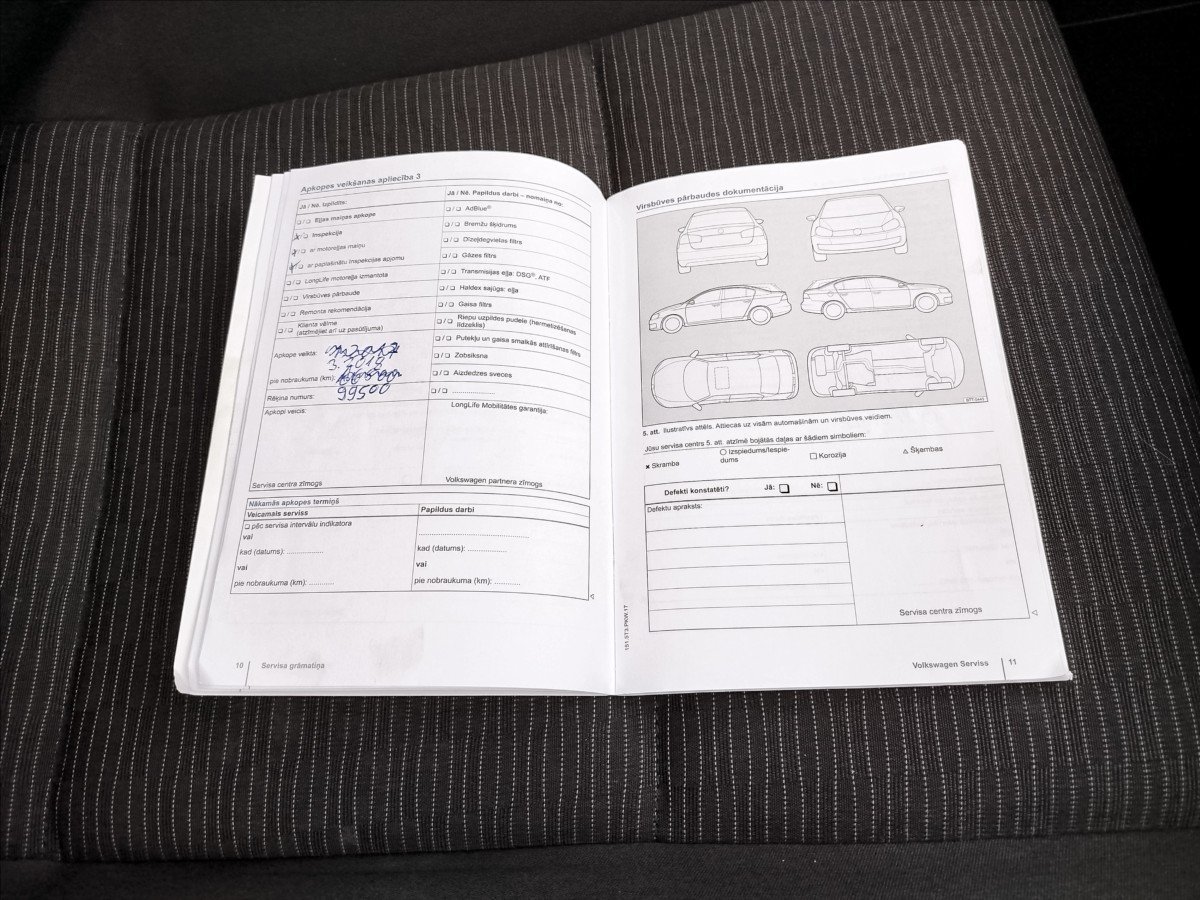 Apkopes veikšanas apliecība 3
Jā / Nē. Izpildīts:
❏ / ❏ Eļļas maiņas apkope
❏ / ❏ Inspekcija
❏ / ❏ ar motoreļļas maiņu
❏ / ❏ ar paplašinātu inspekcijas apjomu
❏ / ❏ LongLife motoreļļa izmantota
❏ / ❏ Virsbūves pārbaude
❏ / ❏ Remonta rekomendācija
❏ / ❏ Klienta vēlme
(atzīmējiet arī uz pasūtījuma)
Apkope veikta:
3. 2019
pie nobraukuma (km):
Rēķina numurs: 99500
Apkopi veicis:
Servisa centra zīmogs
Jā / Nē. Papildus darbi – nomaiņa no:
❏ / ❏ AdBlue®
❏ / ❏ Bremžu šķidrums
❏ / ❏ Dīzeļdegvielas filtrs
❏ / ❏ Gāzes filtrs
❏ / ❏ Transmisijas eļļa: DSG®, ATF
❏ / ❏ Haldex sajūgs: eļļa
❏ / ❏ Gaisa filtrs
❏ / ❏ Riepu uzpildes pudele (hermetizēšanas
līdzeklis)
❏ / ❏ Putekļu un gaisa smalkās attīrīšanas filtrs
❏ / ❏ Zobsiksna
❏ / ❏ Aizdedzes sveces
❏ / ❏ ....................
LongLife Mobilitātes garantija:
Volkswagen partnera zīmogs
Nākamās apkopes termiņš
Veicamais serviss
❏ pēc servisa intervālu indikatora
vai
kad (datums): .................
vai
pie nobraukuma (km): ............
Papildus darbi
..........................................
kad (datums): .................
vai
pie nobraukuma (km): ............
10 Servisa grāmatiņa
Virsbūves pārbaudes dokumentācija
5. att. Ilustratīvs attēls. Attiecas uz visām automašīnām un virsbūves veidiem.
Jūsu servisa centrs 5. att. atzīmē bojātās daļas ar šādiem simboliem:
✗ Skramba ○ Izspiedums/Iespie-
dums □ Korozija △ Šķembas
Defekti konstatēti? Jā: ❏ Nē: ❏
Defektu apraksts:
Servisa centra zīmogs
151.5T3.PKW.17
Volkswagen Serviss 11